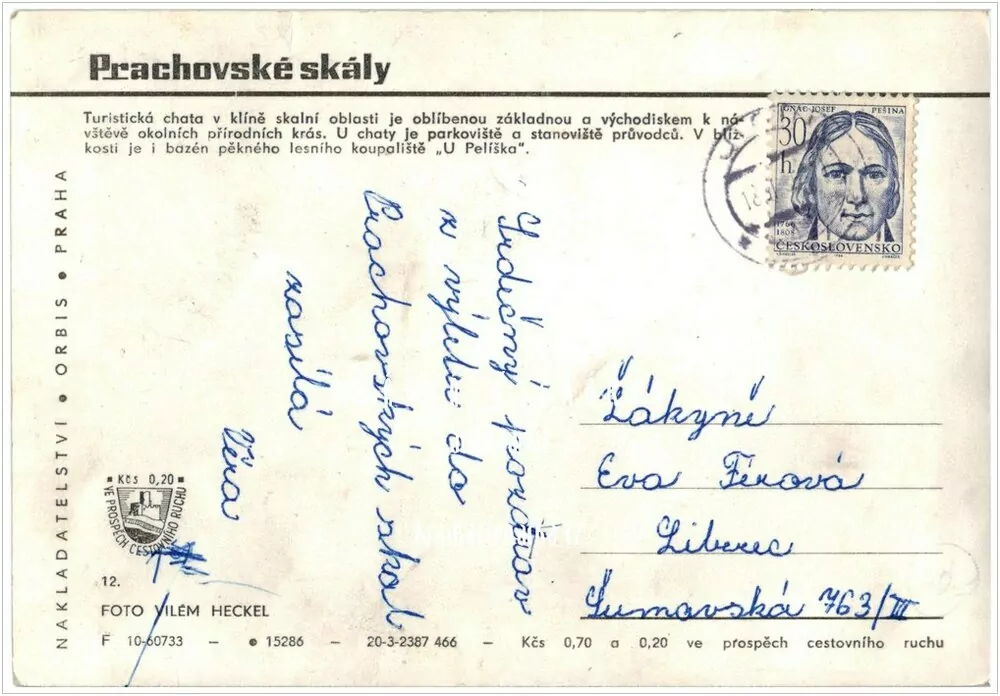 Prachovské skály
Turistická chata v klíně skalní oblasti je oblíbenou základnou a východiskem k ná-
vštěvě okolních přírodních krás. U chaty je parkoviště a stanoviště průvodců. V blíz-
kosti je i bazén pěkného lesního koupaliště „U Pelíška“.
IGNÁC JOSEF PEŠINA
30
h
1766
1808
ČESKOSLOVENSKO
18
Srdečný pozdrav
z výletu do
Prachovských skal
zasílá
Věra
Žákyně
Eva Férová
Liberec
Šumavská 763/III
NAKLADATELSTVÍ • ORBIS • PRAHA
Kčs 0,20
VE PROSPĚCH CESTOVNÍHO RUCHU
12.
FOTO VILÉM HECKEL
F 10-60733 — 15286 — 20-3-2387 466 — Kčs 0,70 a 0,20 ve prospěch cestovního ruchu